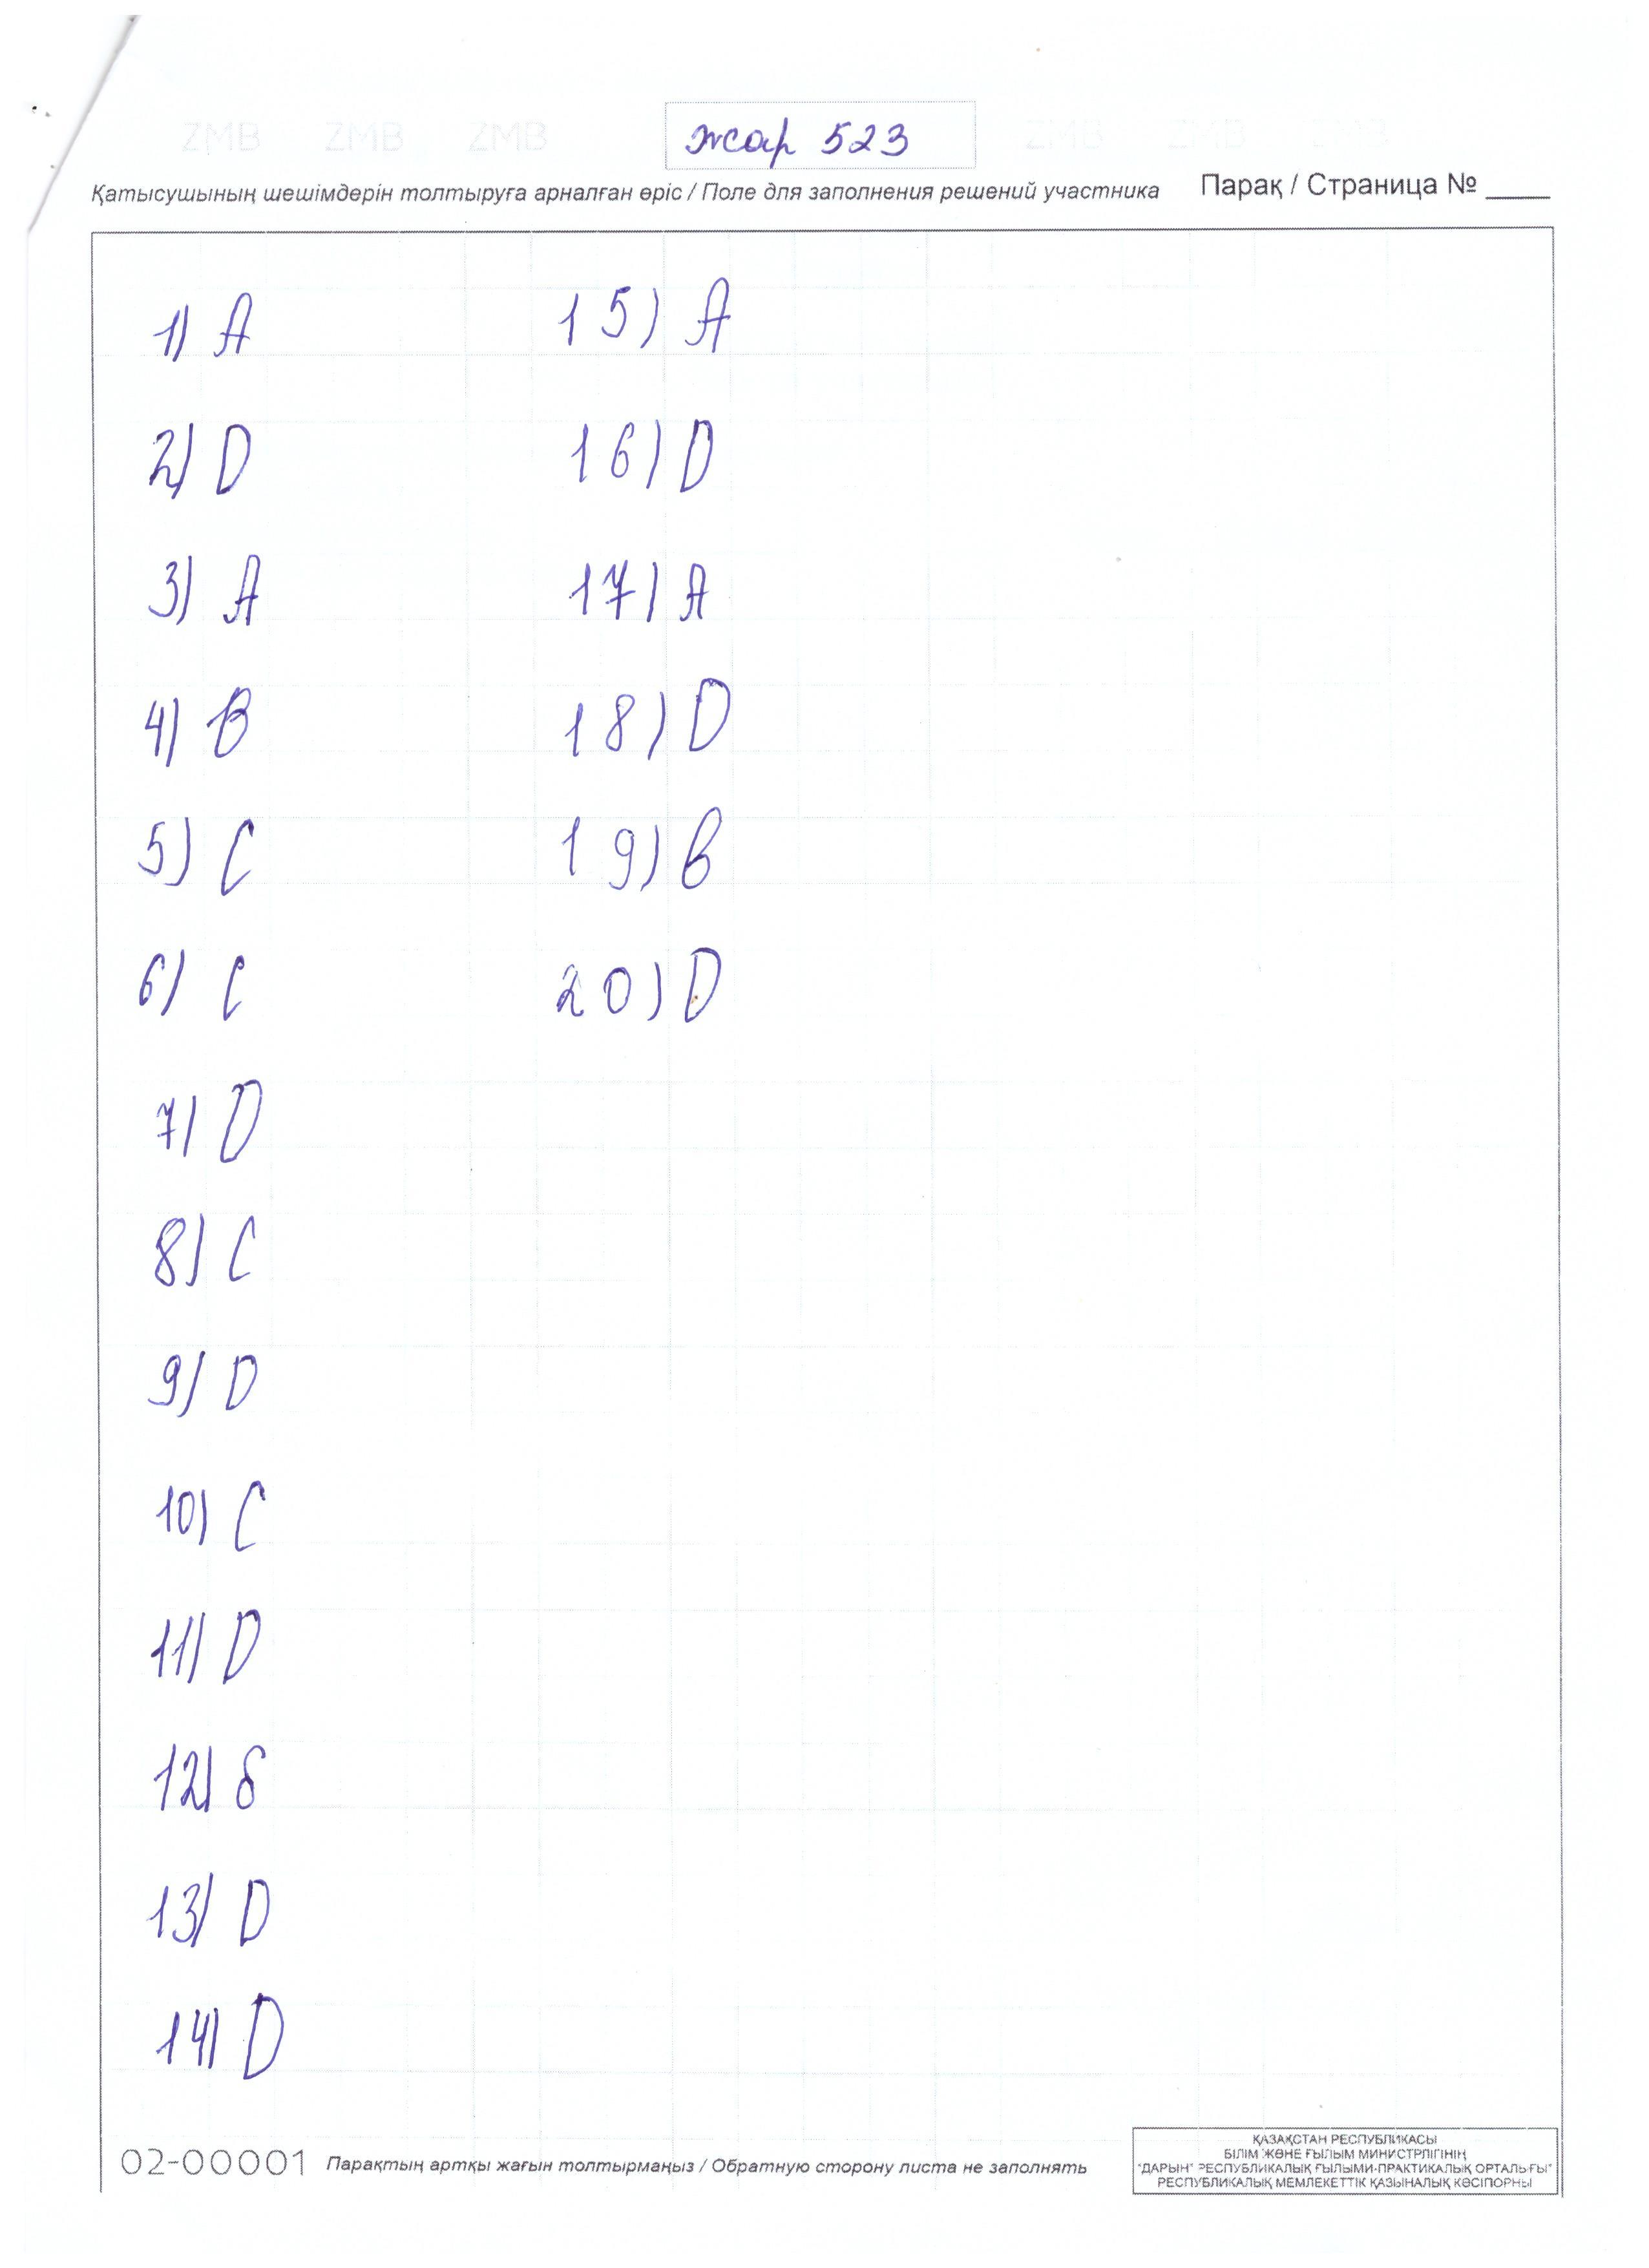 ZMB ZMB ZMB жар 523 ZMB ZMB ZMB
Қатысушының шешімдерін толтыруға арналған өріс / Поле для заполнения решений участника Парақ / Страница № ____
1) A
2) D
3) A
4) B
5) C
6) C
7) D
8) C
9) D
10) C
11) D
12) B
13) D
14) D
15) A
16) D
17) A
18) D
19) B
20) D
02-00001 Парақтың артқы жағын толтырмаңыз / Обратную сторону листа не заполнять
ҚАЗАҚСТАН РЕСПУБЛИКАСЫ
БІЛІМ ЖӘНЕ ҒЫЛЫМ МИНИСТРЛІГІНІҢ
"ДАРЫН" РЕСПУБЛИКАЛЫҚ ҒЫЛЫМИ-ПРАКТИКАЛЫҚ ОРТАЛЫҒЫ"
РЕСПУБЛИКАЛЫҚ МЕМЛЕКЕТТІК ҚАЗЫНАЛЫҚ КӘСІПОРНЫ